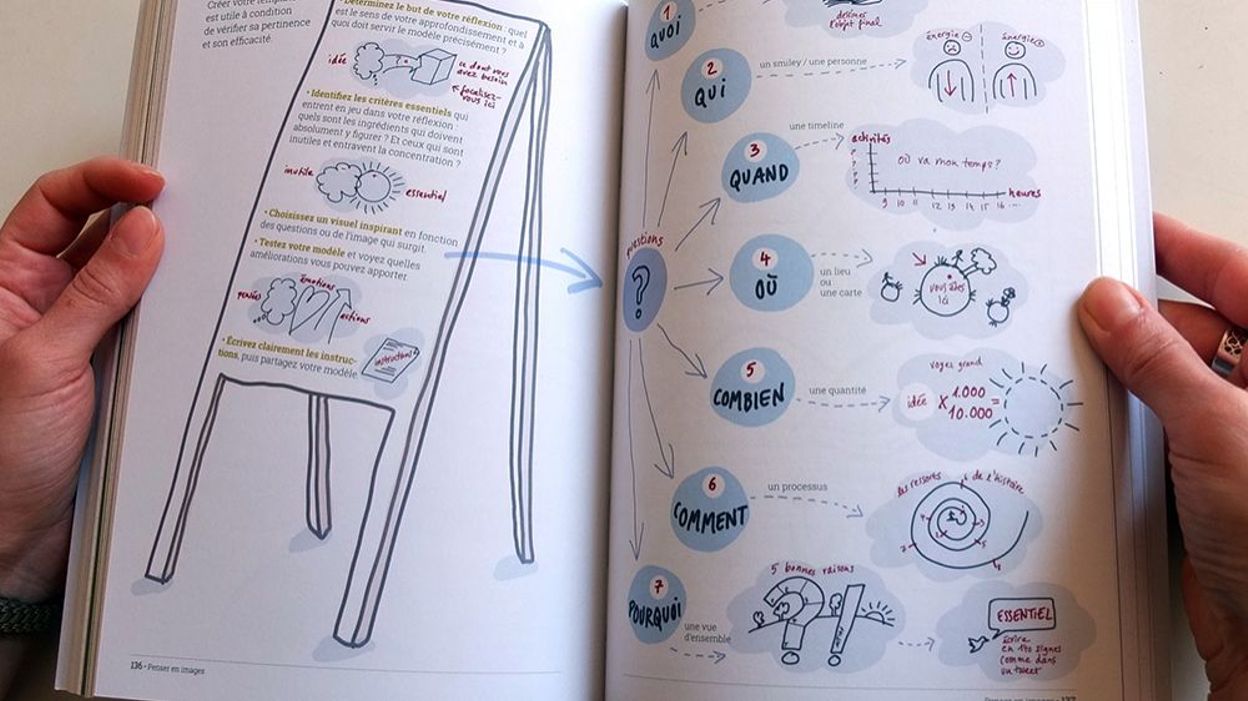 Créer votre
est utile à condition
de vérifier sa pertinence
et son efficacité.
• Déterminez le but de votre réflexion : quel
est le sens de votre approfondissement et à
quoi doit servir le modèle précisément ?
idée
?
ce dont vous
avez besoin
focalisez-
vous ici
• Identifiez les critères essentiels qui
entrent en jeu dans votre réflexion :
quels sont les ingrédients qui doivent
absolument y figurer ? Et ceux qui sont
inutiles et entravent la concentration ?
inutile
essentiel
• Choisissez un visuel inspirant en fonction
des questions ou de l'image qui surgit.
• Testez votre modèle et voyez quelles
améliorations vous pouvez apporter.
pensées
émotions
actions
• Écrivez clairement les instruc-
tions, puis partagez votre modèle.
instructions
136 • Penser en images
questions
?
1
QUOI
dessinez
l'objet final
2
QUI
un smiley / une personne
énergie -
énergie +
3
QUAND
une timeline
activités
? ? ? ?
où va mon temps ?
heures
9 10 11 12 13 14 15 16 ....
4
OÙ
un lieu
ou
une carte
vous êtes
ici
5
COMBIEN
une quantité
voyez grand
idée X 1.000 =
10.000
6
COMMENT
un processus
les ressorts de l'histoire
7
POURQUOI
une vue
d'ensemble
5 bonnes raisons
? !
ESSENTIEL
écrire
en 140 signes
comme dans
un tweet
Penser en images • 137